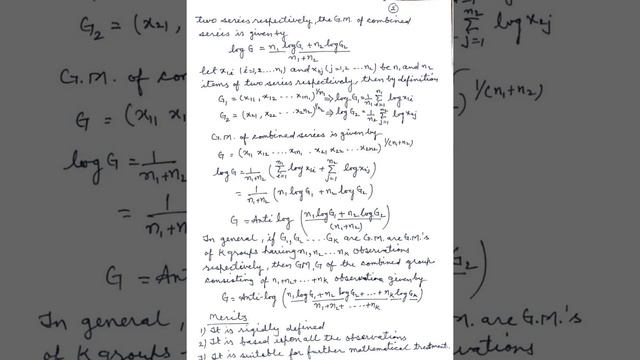 ②
two series respectively, the G.M. of combined
series is given by
log G = n₁ log G₁ + n₂ log G₂ / n₁+n₂
let x₁ᵢ (i=1,2...n₁) and x₂ⱼ (j=1,2...n₂) be n₁ and n₂
items of two series respectively, then by definition
G₁ = (x₁₁, x₁₂ ... x₁n₁)^1/n₁ ⇒ log G₁ = 1/n₁ Σᵢ₌₁ⁿ¹ log x₁ᵢ
G₂ = (x₂₁, x₂₂ ... x₂n₂)^1/n₂ ⇒ log G₂ = 1/n₂ Σⱼ₌₁ⁿ² log x₂ⱼ
G.M. of combined series is given by
G = (x₁₁ x₁₂ ... x₁n₁ . x₂₁ x₂₂ ... x₂n₂)^1/(n₁+n₂)
log G = 1/n₁+n₂ (Σᵢ₌₁ⁿ¹ log x₁ᵢ + Σⱼ₌₁ⁿ² log x₂ⱼ)
= 1/n₁+n₂ (n₁ log G₁ + n₂ log G₂)
G = Anti log (n₁ log G₁ + n₂ log G₂ / (n₁+n₂))
In general, if G₁, G₂ ... Gₖ are G.M. are G.M.'s
of K groups having n₁, n₂ ... nₖ observations
respectively, then GM, G of the combined group
consisting of n₁+n₂+...+nₖ observation given by
G = Anti-log (n₁ log G₁ + n₂ log G₂ + ... + nₖ log Gₖ / n₁+n₂+....+nₖ)
Merits
1) It is rigidly defined
2) It is based upon all the observations
3) It is suitable for further mathematical treatment.